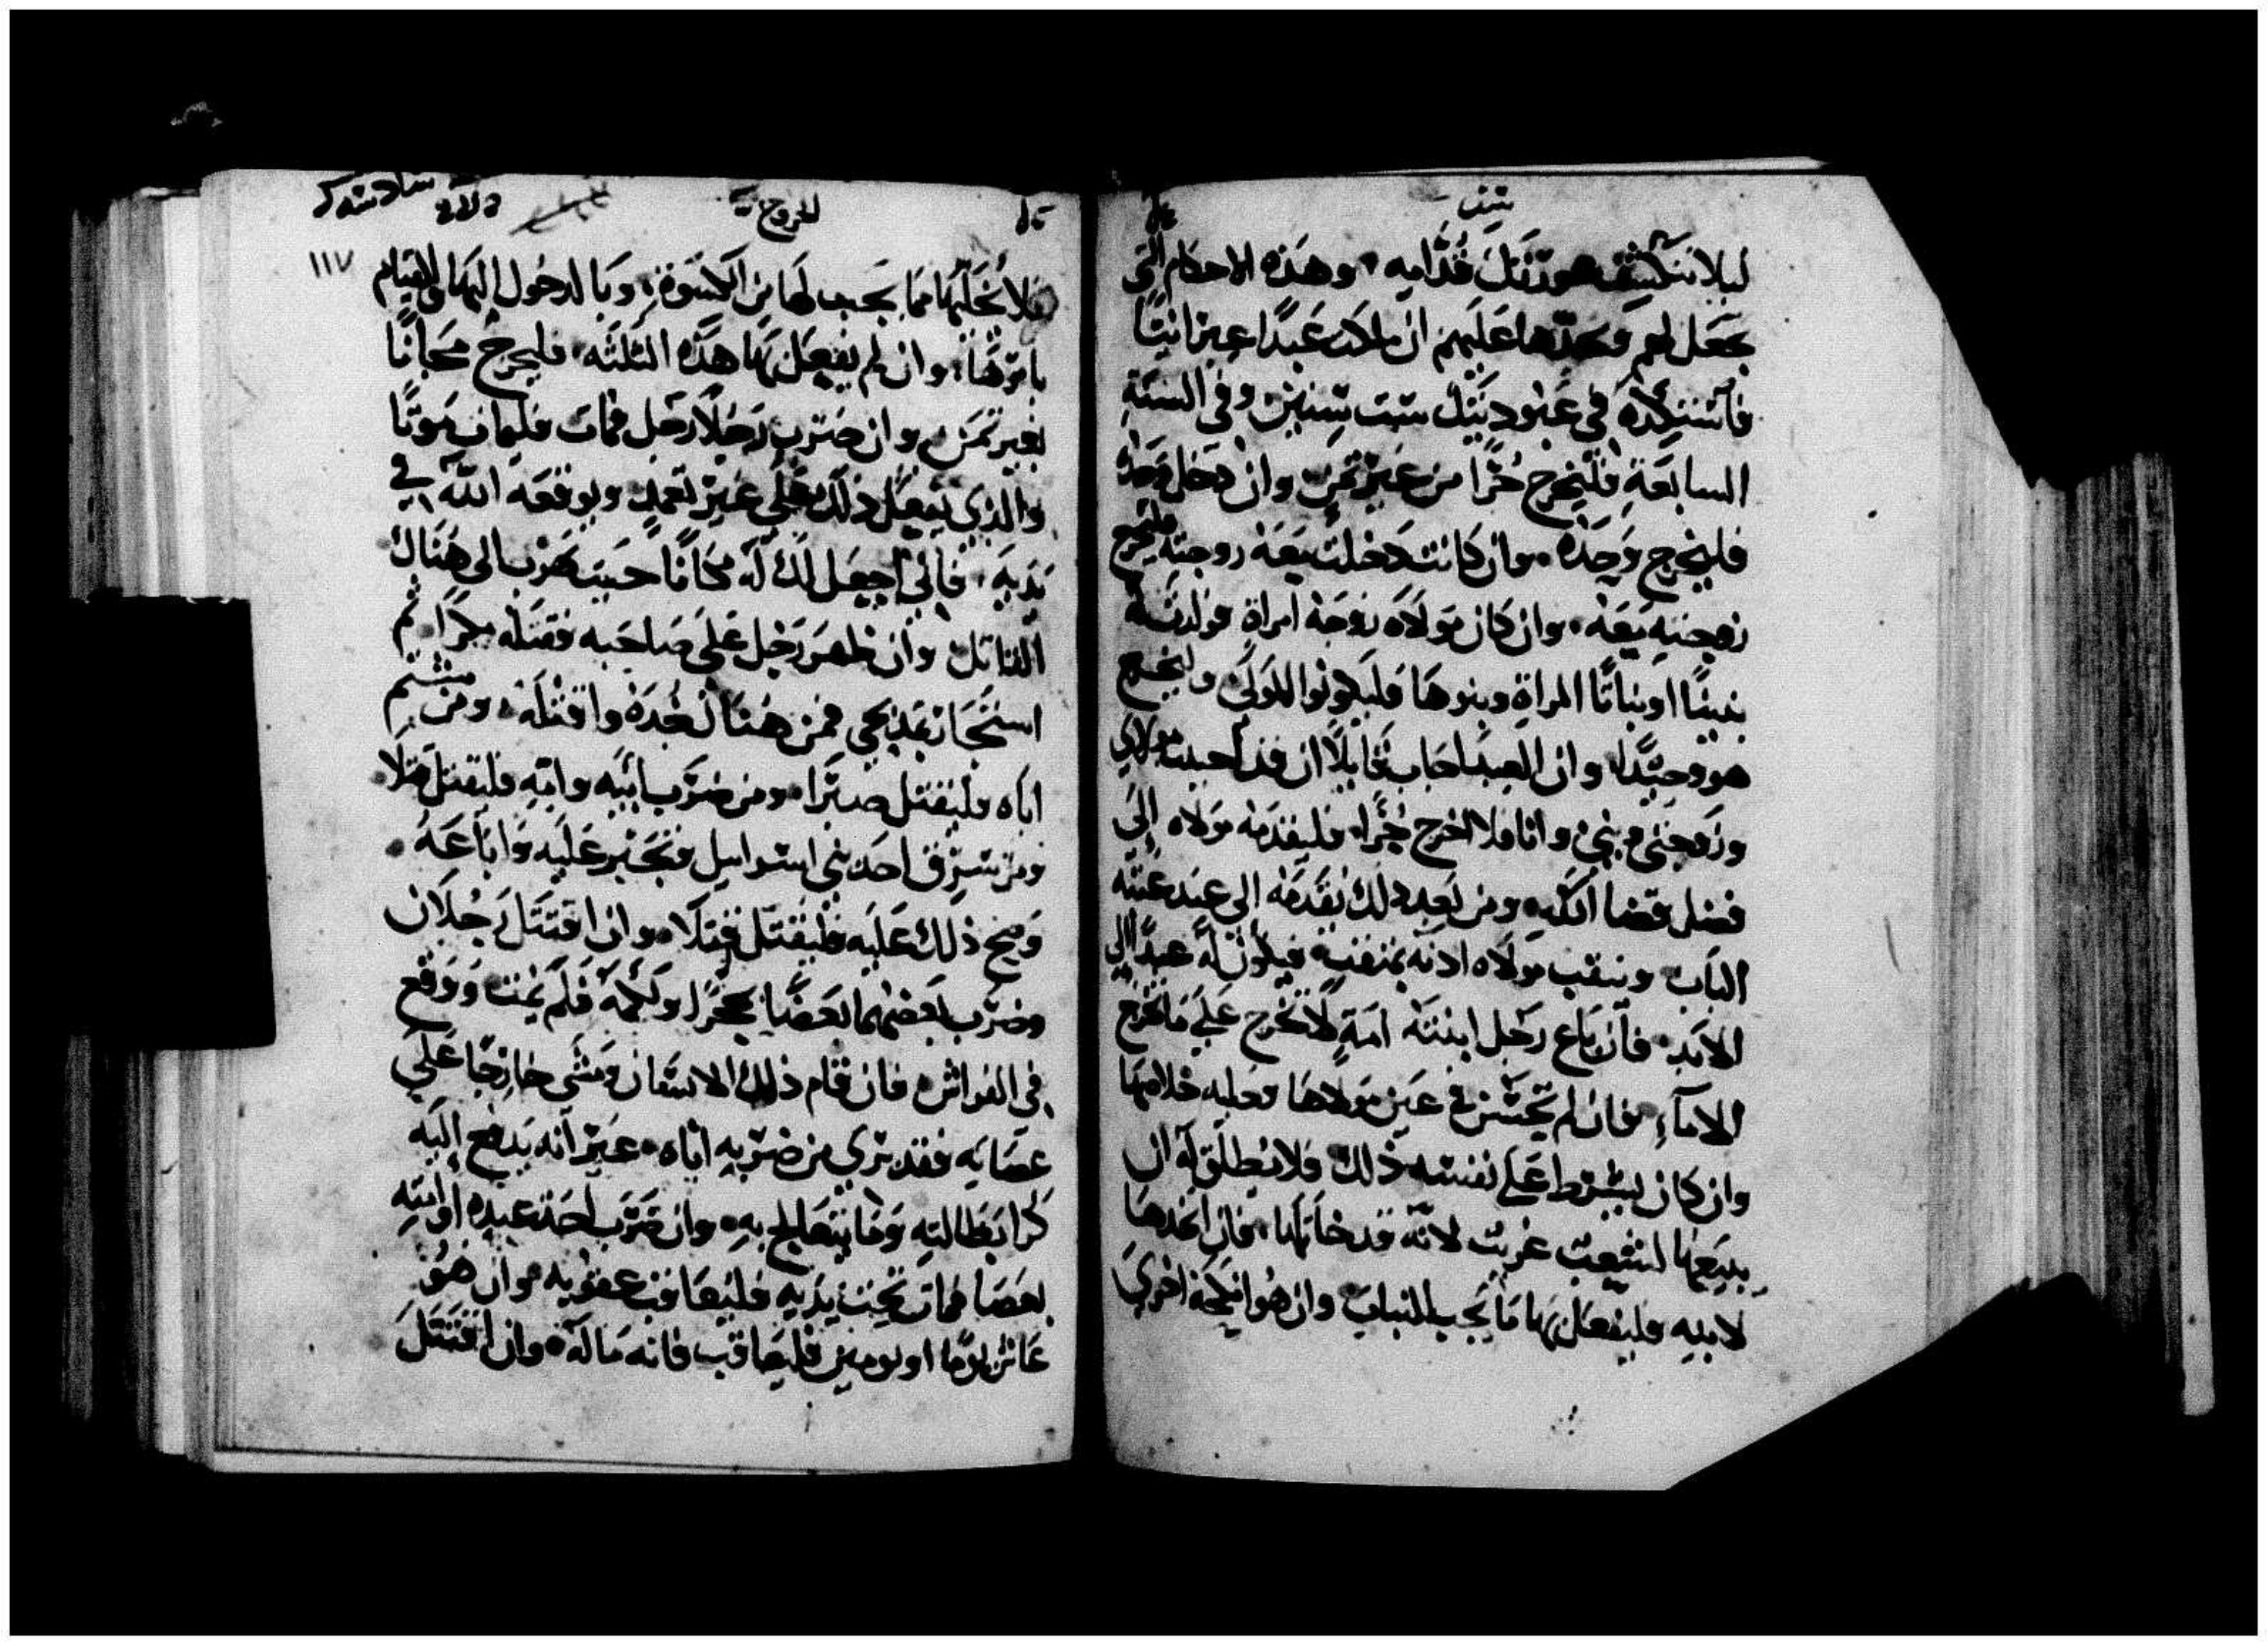 سفر
ليلا تنكشف عورتك قدامه • وهذه الاحكام التي
تجعل لهم وتعدها عليهم ان ملكت عبدا عبرانيا
فاستكده في عبوديتك ست سنين وفي السنة
السابعة فليخرج حرا من غير ثمن وان دخل وحده
فليخرج وحده • وان كانت دخلت معه زوجته فلتخرج
زوجته معه • وان كان مولاه زوجه امراة فولدت له
بنينا او بناتا المراة وبنوها فليكونوا للمولى وليخرج
هو وحيدا • وان العبد اجاب قايلا ان قد احببت مولاي
وزوجتي وبني وانا فلا اخرج حرا • فليقدمه مولاه الى
فضل قضا الله • ومن بعد ذلك يقدمه الى عند عتبة
الباب وينقب مولاه اذنه بمنقب فيكون له عبدا الى
الابد • فان باع رجل ابنته امة لا تخرج على ما تخرج
الاماء • فان لم تحسن في عين مولاها فعليه خلاصها
وان كان يشرط على نفسه ذلك فلا يطلق له ان
يبيعها لشعب غريب لانه قد خانها • فان اتخذها
لابنه فليفعل بها ما يجب للبنات وان هو انكحه اخرى
الخروج
١١٧
فلا يخليها مما يجب لها من الكسوة • وبالدخول اليها والقيام
بامرها • وان لم يفعل بها هذه الثلثه • فلتخرج مجانا
بغير ثمن وان ضرب رجلا رجل فمات فليمات موتا
والذي يفعل ذلك على غير تعمد ويوقعه الله في
يديه • فاني اجعل لك له مكانا حيث يهرب الى هناك
القاتل وان ظهر رجل على صاحبه فقتله مكرا • ثم
استجار بمذبحي فمن هناك تخذه واقتله • ومن شتم
اباه فليقتل صبرا • ومن ضرب ابيه وامه فليقتل قتلا •
ومن سرق احد بني اسرايل فتجبر عليه واباعه •
وصح ذلك عليه فليقتل قتلا • وان اقتتل رجلان
وضرب بعضهما بعضا بحجر او لكمه فلم يمت ووقع
في الفراش • فان قام ذلك الانسان ومشى خارجا على
عصايه فقد بري من ضربه اياه • غير انه يدفع اليه
كرا بطالته وما يتعالج به • وان ضرب احد عبده او امته
بعصا فمات تحت يديه فليعاقب عقوبه • وان هو
عاش يوما او يومين فلا يعاقب فانه ماله • وان اقتتل